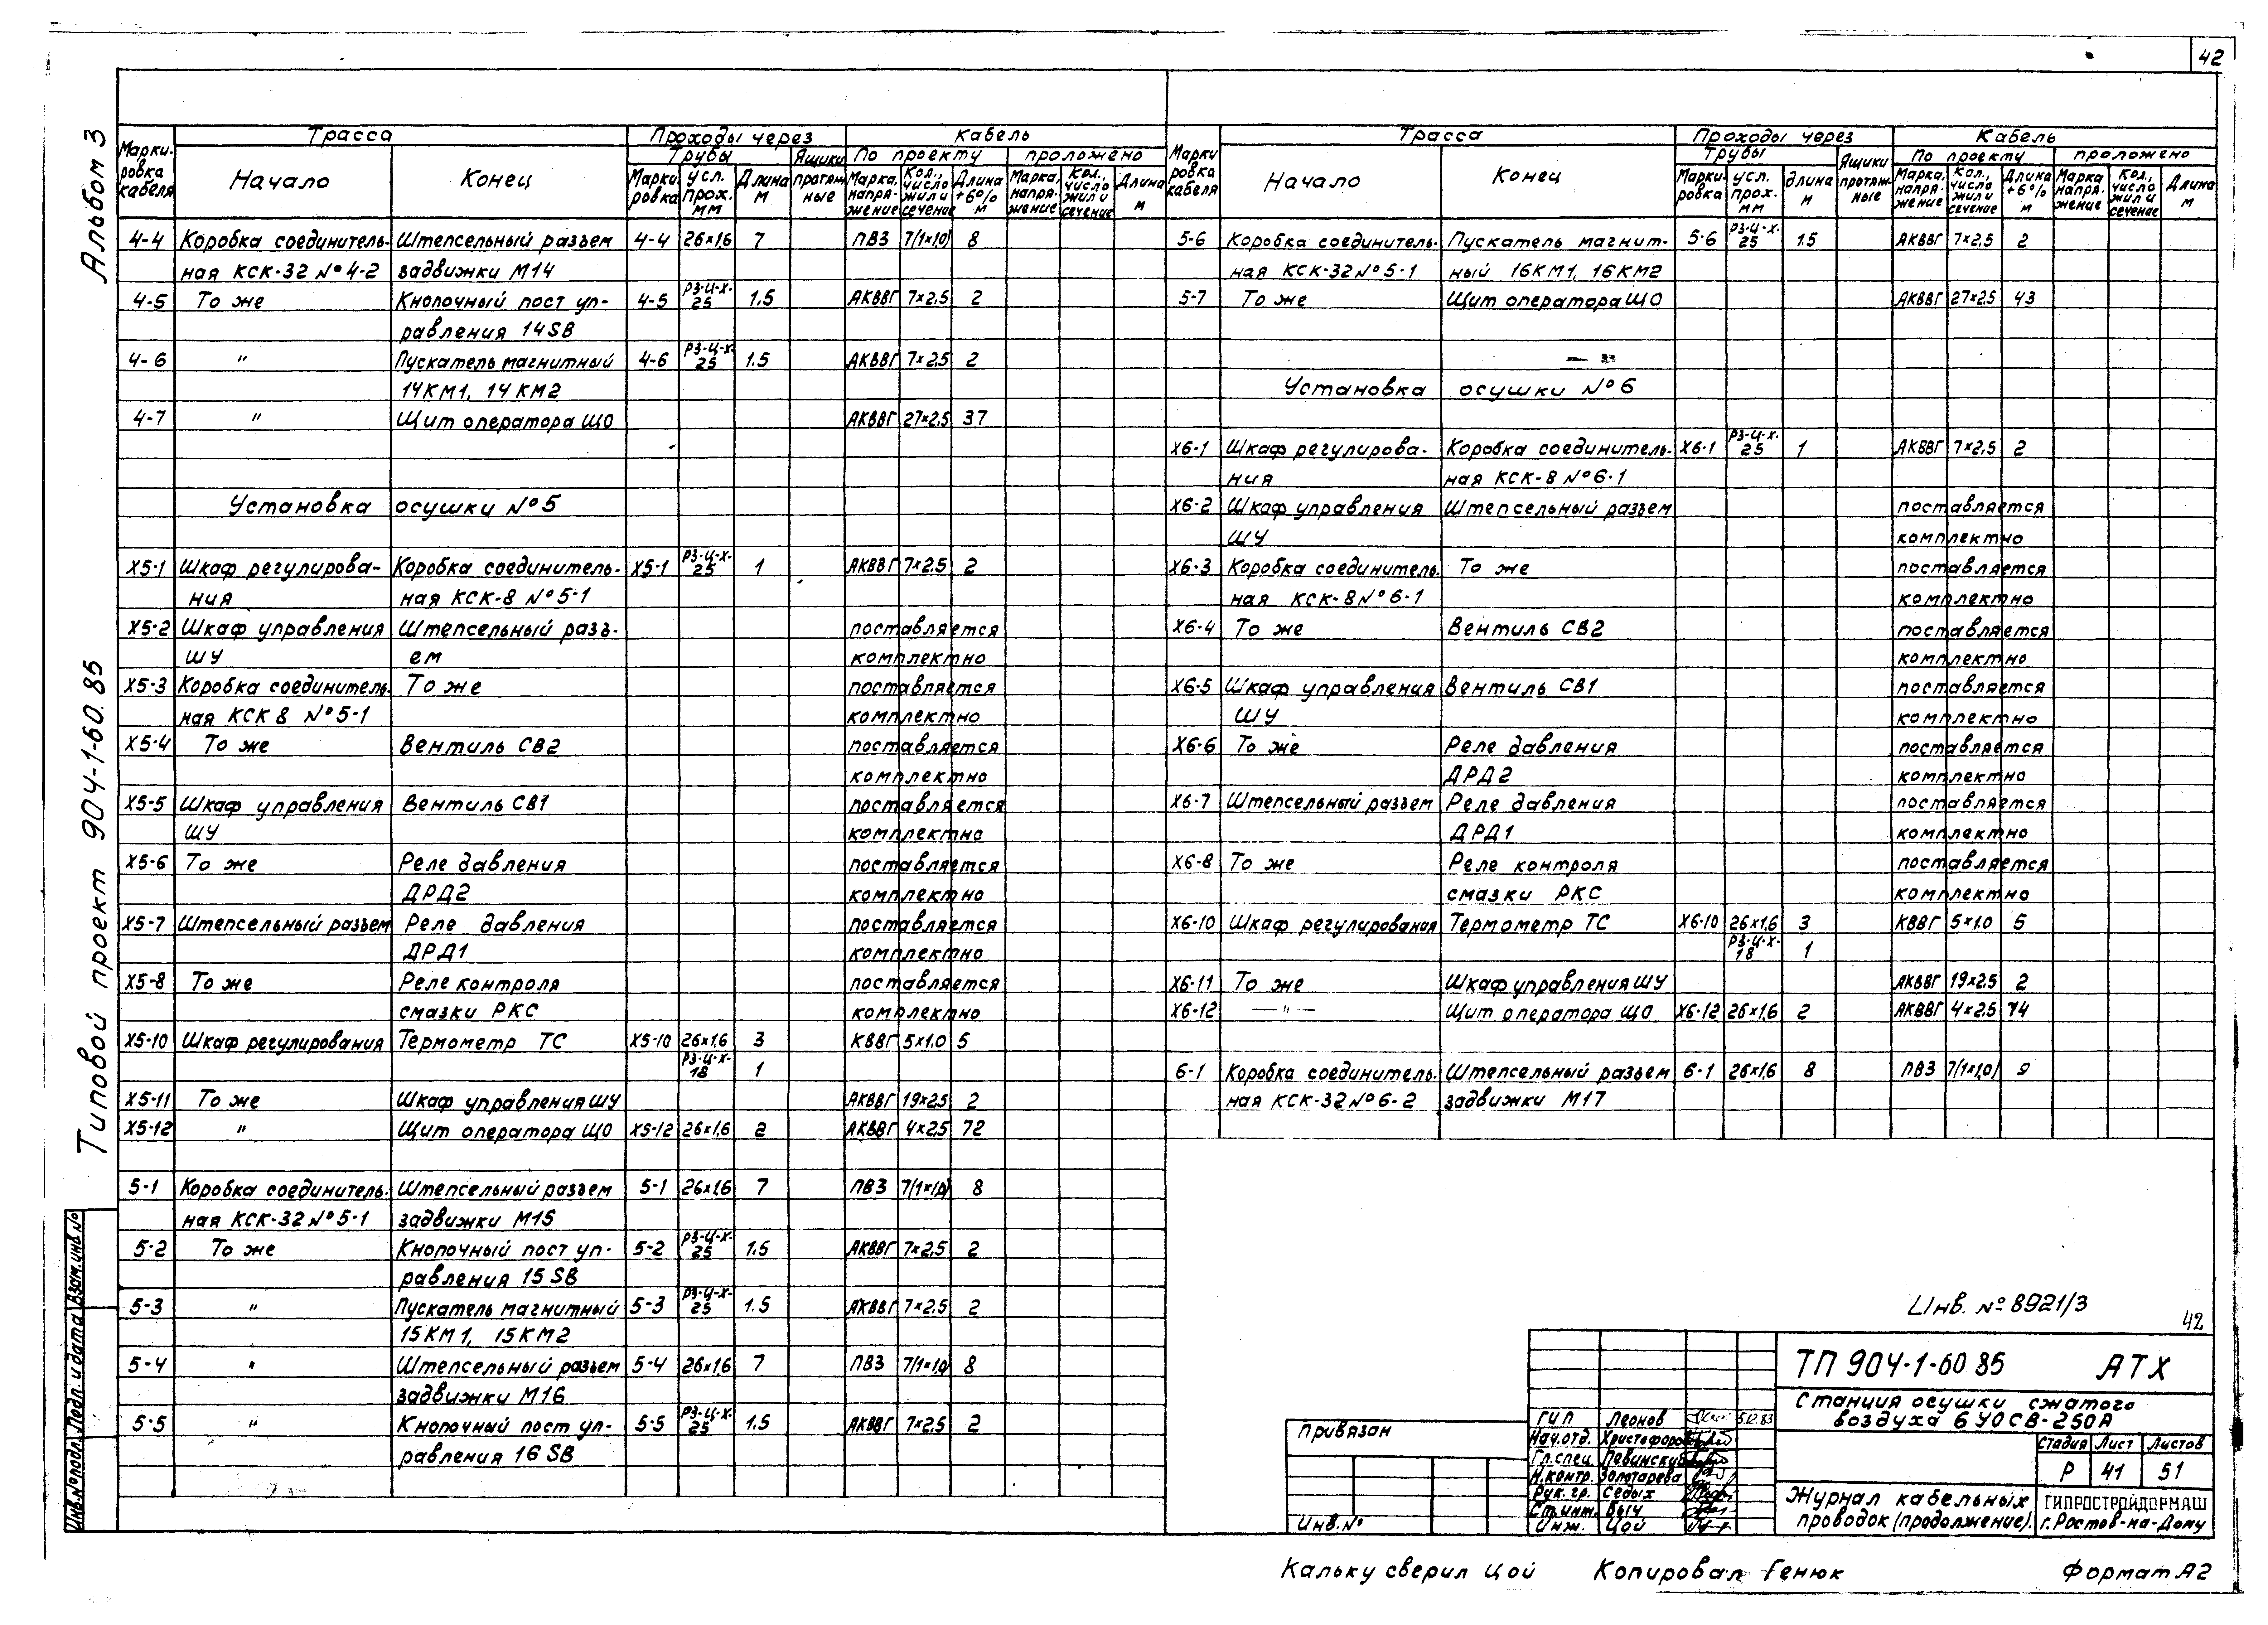 42
Альбом 3
Типовой проект 904-1-60.85
Марки-ровка кабеля | Трасса | Проходы через | Кабель
Начало | Конец | Трубы | Ящики протяж-ные | По проекту | проложено
Марки-ровка | усл. прох. мм | Длина м | Марка, напря-жение | Кол., число жил и сечение | Длина +6% м | Марка, напря-жение | Кол., число жил и сечение | Длина м
4-4 Коробка соединитель- Штепсельный разъем 4-4 26×1,6 7 ПВ3 7/1×1,0/ 8
ная КСК-32 №4-2 задвижки М14
4-5 То же Кнопочный пост уп- 4-5 РЗ-Ц-Х-25 1.5 АКВВГ 7×2,5 2
равления 14SB
4-6 " Пускатель магнитный 4-6 РЗ-Ц-Х-25 1.5 АКВВГ 7×2,5 2
14КМ1, 14КМ2
4-7 " Щит оператора ЩО АКВВГ 27×2,5 37
Установка осушки №5
Х5-1 Шкаф регулирова- Коробка соединитель- Х5-1 РЗ-Ц-Х-25 1 АКВВГ 7×2,5 2
ния ная КСК-8 №5-1
Х5-2 Шкаф управления Штепсельный разъ- поставляется
ШУ ем комплектно
Х5-3 Коробка соединитель- То же поставляется
ная КСК 8 №5-1 комплектно
Х5-4 То же Вентиль СВ2 поставляется
комплектно
Х5-5 Шкаф управления Вентиль СВ1 поставляется
ШУ комплектно
Х5-6 То же Реле давления поставляется
ДРД2 комплектно
Х5-7 Штепсельный разъем Реле давления поставляется
ДРД1 комплектно
Х5-8 То же Реле контроля поставляется
смазки РКС комплектно
Х5-10 Шкаф регулирования Термометр ТС Х5-10 26×1,6 3 КВВГ 5×1.0 5
РЗ-Ц-Х-18 1
Х5-11 То же Шкаф управления ШУ АКВВГ 19×2,5 2
Х5-12 " Щит оператора ЩО Х5-12 26×1,6 2 АКВВГ 4×2,5 72
5-1 Коробка соединитель- Штепсельный разъем 5-1 26×1,6 7 ПВ3 7/1×1,0/ 8
ная КСК-32 №5-1 задвижки М15
5-2 То же Кнопочный пост уп- 5-2 РЗ-Ц-Х-25 1.5 АКВВГ 7×2,5 2
равления 15SB
5-3 " Пускатель магнитный 5-3 РЗ-Ц-Х-25 1.5 АКВВГ 7×2,5 2
15КМ1, 15КМ2
5-4 " Штепсельный разъем 5-4 26×1,6 7 ПВ3 7/1×1,0/ 8
задвижки М16
5-5 " Кнопочный пост уп- 5-5 РЗ-Ц-Х-25 1.5 АКВВГ 7×2,5 2
равления 16SB
Марки ровка кабеля | Трасса | Проходы через | Кабель
Начало | Конец | Трубы | Ящики протяж-ные | По проекту | проложено
Марки-ровка | усл. прох. мм | длина м | Марка, напря-жение | Кол., число жил и сечение | Длина +6% м | Марка напря-жение | Кол., число жил и сечение | Длина м
5-6 Коробка соединитель- Пускатель магнит- 5-6 РЗ-Ц-Х-25 1.5 АКВВГ 7×2,5 2
ная КСК-32 №5-1 ный 16КМ1, 16КМ2
5-7 То же Щит оператора ЩО АКВВГ 27×2,5 43
Установка осушки №6
Х6-1 Шкаф регулирова- Коробка соединитель- Х6-1 РЗ-Ц-Х-25 1 АКВВГ 7×2,5 2
ния ная КСК-8 №6-1
Х6-2 Шкаф управления Штепсельный разъем поставляется
ШУ комплектно
Х6-3 Коробка соединитель- То же поставляется
ная КСК-8 №6-1 комплектно
Х6-4 То же Вентиль СВ2 поставляется
комплектно
Х6-5 Шкаф управления Вентиль СВ1 поставляется
ШУ комплектно
Х6-6 То же Реле давления поставляется
ДРД2 комплектно
Х6-7 Штепсельный разъем Реле давления поставляется
ДРД1 комплектно
Х6-8 То же Реле контроля поставляется
смазки РКС комплектно
Х6-10 Шкаф регулирования Термометр ТС Х6-10 26×1,6 3 КВВГ 5×1.0 5
РЗ-Ц-Х-18 1
Х6-11 То же Шкаф управления ШУ АКВВГ 19×2,5 2
Х6-12 — " — Щит оператора ЩО Х6-12 26×1,6 2 АКВВГ 4×2,5 74
6-1 Коробка соединитель- Штепсельный разъем 6-1 26×1,6 8 ПВ3 7/1×1,0/ 9
ная КСК-32 №6-2 задвижки М17
Инв. № 8921/3
42
ТП 904-1-60 85 АТХ
Станция осушки сжатого
воздуха 6 УОСВ-250А
Стадия Лист Листов
Р 41 51
Журнал кабельных
проводок (продолжение).
ГИПРОСТРОЙДОРМАШ
г. Ростов-на-Дону
ГИП Леонов 5.12.83
Нач.отд. Христофоров
Гл.спец. Левинский
Н.контр. Золотарева
Рук. гр. Седых
Ст.инж. Быч
Инж. Цой
Привязан
Инв. №
Инв.№ подл. Подп. и дата Взам.инв.№
Кальку сверил Цой Копировал Генюк Формат А2